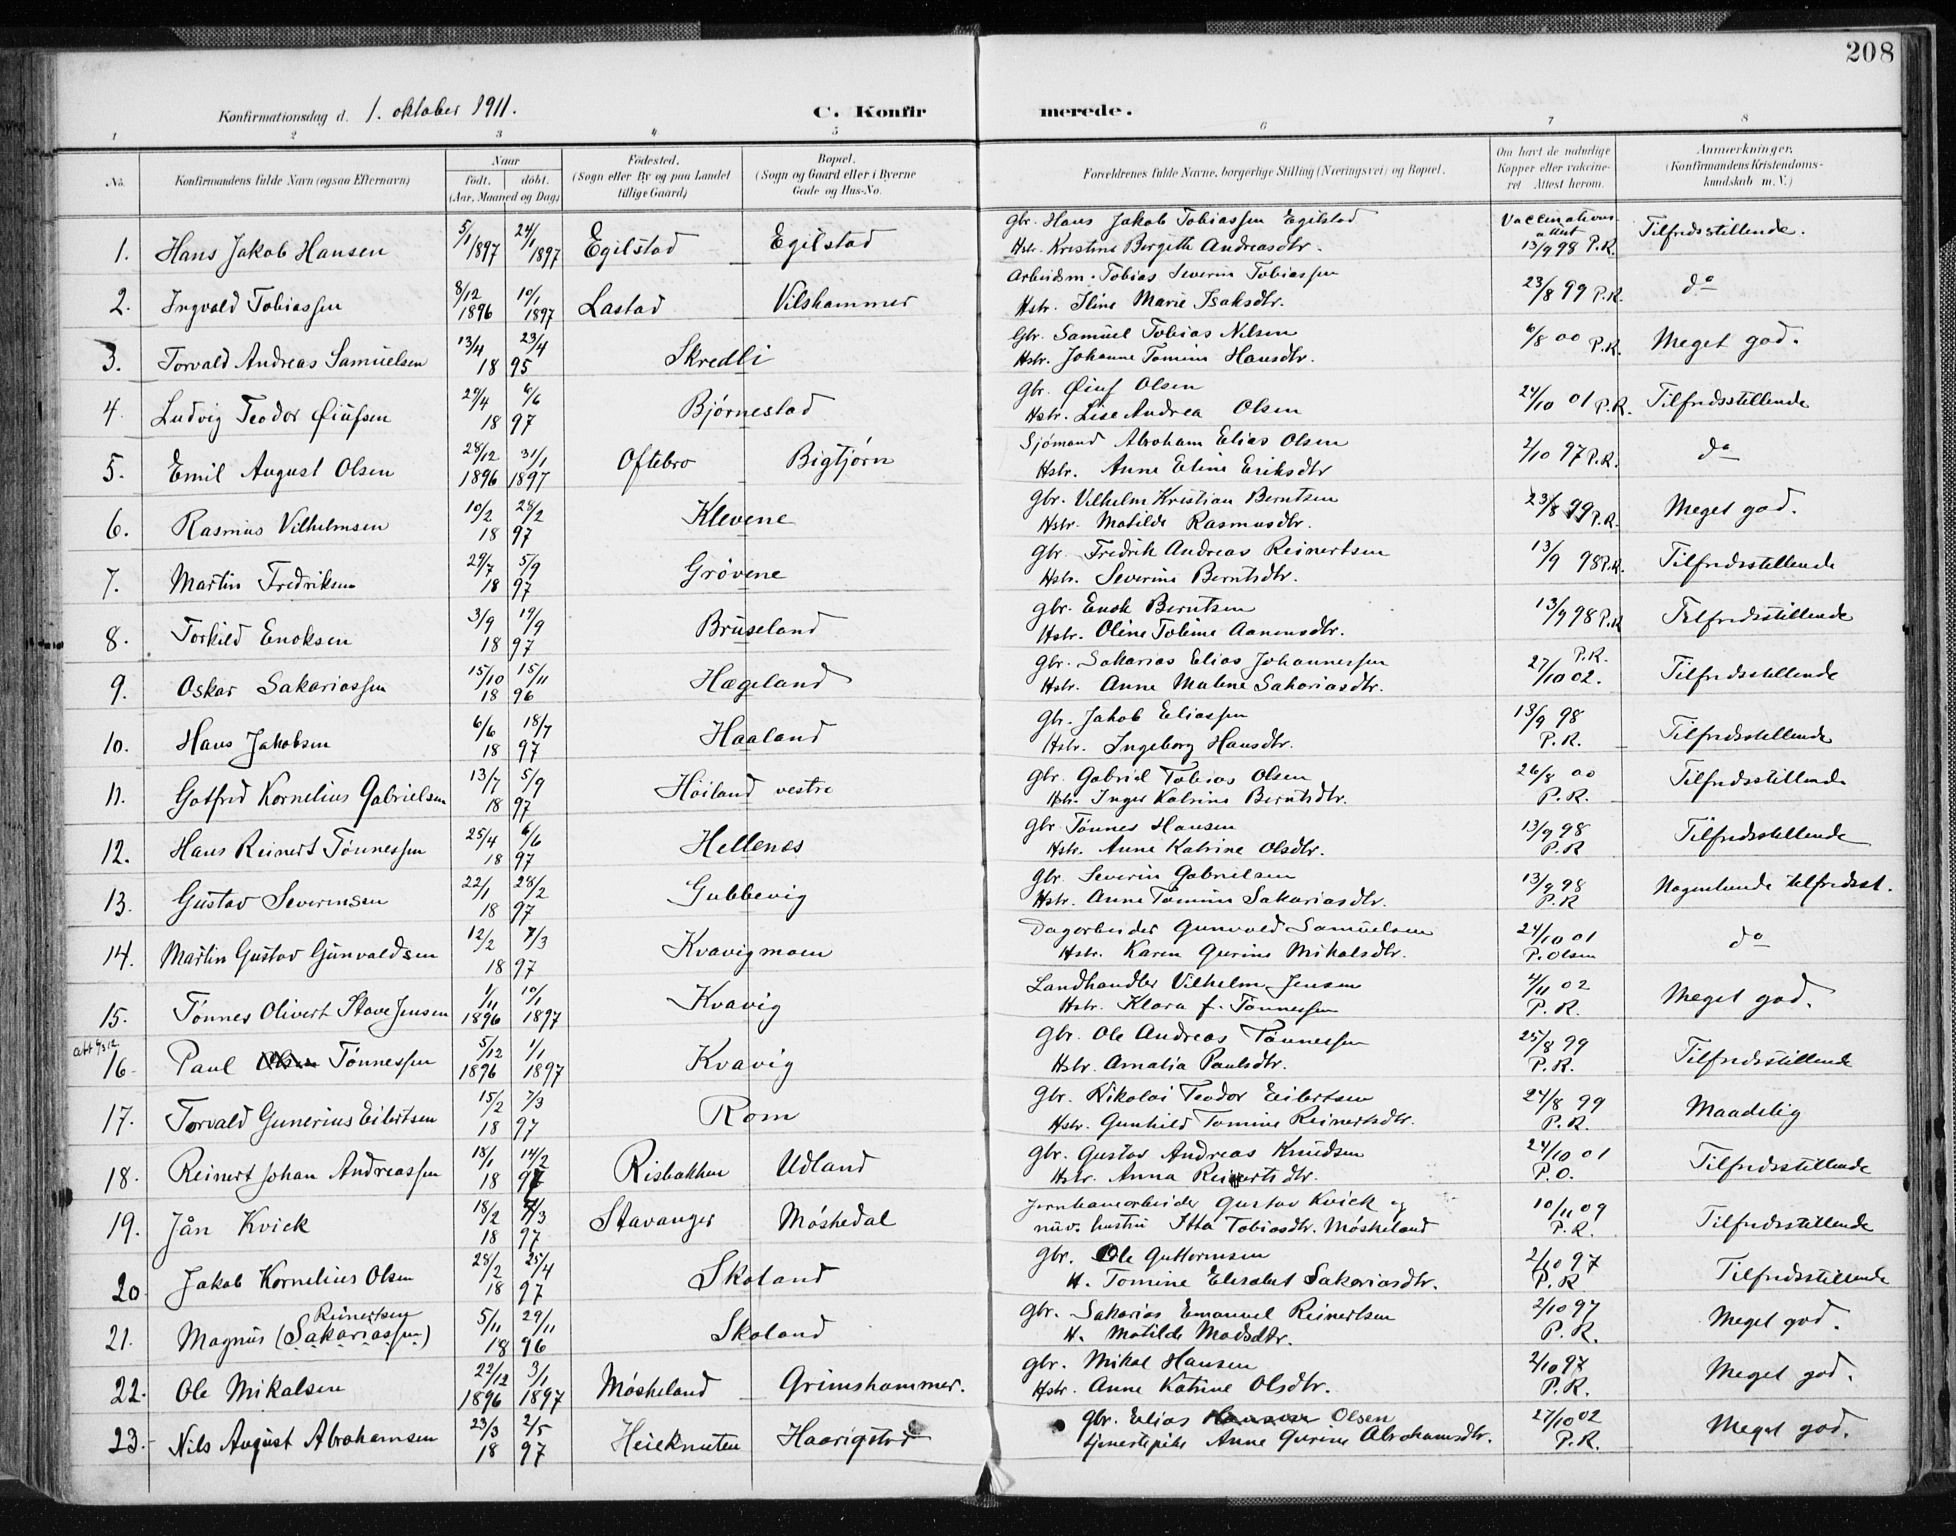 208
Konfirmationsdag d. 1. oktober 1911. C. Konfirmerede.
1 2 3 4 5 6 7 8
No. Konfirmandens fulde Navn (ogsaa Efternavn) Naar födt. döbt. (Aar, Maaned og Dag) Födested. (Sogn eller By og paa Landet tillige Gaard) Bopæl. (Sogn og Gaard eller i Byerne Gade og Hus-No. Forældrenes fulde Navne, borgerlige Stilling (Næringsvei) og Bopæl. Om havt de naturlige Kopper eller vakcineret. Attest herom. Anmærkninger. (Konfirmandens Kristendomskundskab m. V.)
1. Hans Jakob Hansen 5/1 1897 24/1 1897 Egilstad Egilstad Gbr. Hans Jakob Tobiassen Egilstad Hstr. Kristine Bergitte Andreasdtr. Vaccinations attest 13/9 98 P.R. Tilfredsstillende.
2. Ingvald Tobiassen 8/12 1896 10/1 1897 Lastad Vilshammer Arbeidsm. Tobias Severin Tobiassen Hstr. Iline Marie Isaksdtr. 23/8 99 P.R. do
3. Torvald Andreas Samuelsen 13/4 23/4 1895 Skredli Gbr. Samuel Tobias Nilsen Hstr. Johanne Tomine Hansdtr. 6/8 00 P.R. Meget god.
4. Ludvig Teodor Øiufsen 29/4 6/6 1897 Bjørnestad Gbr. Øiuf Olsen Hstr. Lise Andrea Olsen 24/10 01 P.R. Tilfredsstillende
5. Emil August Olsen 28/12 1896 31/1 1897 Oftebro Bigtjørn Sjømand Abraham Elias Olsen Hstr. Anne Eline Eriksdtr 2/10 97 P.R. do
6. Rasmus Vilhelmsen 10/2 28/2 1897 Klevene Gbr. Vilhelm Kristian Berntsen Hstr. Matilde Rasmusdtr. 23/8 99 P.R. Meget god.
7. Martin Fredriksen 29/7 5/9 1897 Grøvene Gbr. Fredrik Andreas Reinertsen Hstr. Severine Berntsdtr. 13/9 98 P.R. Tilfredsstillende
8. Torkild Enoksen 3/9 19/9 1897 Bruseland Gbr. Enok Berntsen Hstr. Oline Toline Aanensdtr. 13/9 98 P.R Tilfredsstillende
9. Oskar Sakariassen 15/10 15/11 1896 Hægeland Gbr. Sakarias Elias Johannessen Hstr. Anne Malene Sakariasdtr. 27/10 02. P.R. Tilfredsstillende
10. Hans Jakobsen 6/6 18/7 1897 Haaland Gbr. Jakob Eliassen Hstr. Ingeborg Hansdtr. 13/9 98 P.R. Tilfredsstillende
11. Gotfred Kornelius Gabrielsen 13/7 5/9 1897 Høiland vestre Gbr. Gabriel Tobias Olsen Hstr. Inger Katrine Berntsdtr. 26/8 00 P.R. Tilfredsstillende
12. Hans Reinert Tønnessen 25/4 6/6 1897 Hellenes Gbr. Tønnes Hansen Hstr. Anne Katrine Olsdtr. 13/9 98 P.R Tilfredsstillende
13. Gustav Severinsen 22/1 28/2 1897 Gubbevig Gbr. Severin Gabrielsen Hstr. Anne Tomine Sakariasdtr. 13/9 98 P.R Nogenlunde tilfredsst.
14. Martin Gustav Gunvaldsen 12/2 7/3 1897 Kvavigmoen Dagarbeider Gunvald Samuelsen Hstr. Karen Gurine Mikalsdtr. 24/10 01 P. Olsen do
15. Tønnes Olivert Stave Jensen 1/11 1896 10/1 1897 Kvavig Landhandler Vilhelm Jensen Hstr. Klara f. Tønnessen 4/11 02 P.R. Meget god.
16. Paul Tønnessen 5/12 1896 1/1 1897 Kvavig Gbr. Ole Andreas Tønnessen Hstr. Amalia Paulsdtr. 25/8 99 P.R. Tilfredsstillende
17. Torvald Gunerius Eilertsen 15/2 7/3 1897 Rom Gbr. Nikolai Teodor Eilertsen Hstr. Gunhild Tomine Reinertsdtr. 24/8 99 P.R. Maadelig
18. Reinert Johan Andreassen 18/1 14/2 1897 Risbakken Udland Gbr. Gustav Andreas Knudsen Hstr. Anna Reinertsdtr. 24/10 01 P.O. Tilfredsstillende
19. Jån Kvick 18/2 1897 Stavanger Møskedal Jernbanearbeider Gustav Kvick og nuv. hustru Itta Tobiasdtr. Møskeland 10/11 09 P.R. Tilfredsstillende
20. Jakob Kornelius Olsen 28/2 25/4 1897 Skoland Gbr. Ole Guttormsen H. Tomine Elisabet Sakariasdtr. 2/10 97 P.R Tilfredsstillende
21. Magnus (Sakariassen) Reinertsen 5/11 29/11 1896 Skoland Gbr. Sakarias Emanuel Reinertsen H. Matilde Madsdtr. 2/10 97 P.R. Meget god.
22. Ole Mikalsen 22/12 1896 3/1 1897 Møskeland Grimshammer. Gbr. Mikal Hansen Hstr. Anne Katrine Olsdtr. 2/10 97 P.R. Meget god.
23. Nils August Abrahamsen 23/3 2/5 1897 Heieknuten Haarigstad Gbr. Elias Olsen tjenestepike Anne Gurine Abrahamsdtr. 27/10 02 P.R. Meget god.